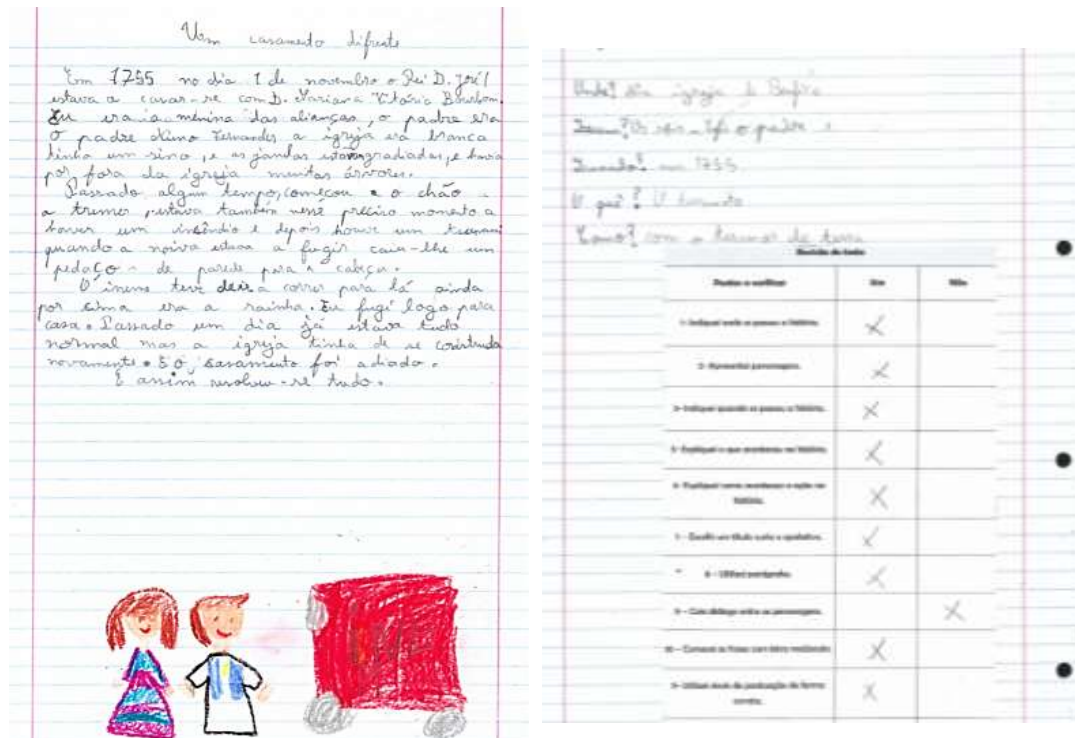 Um casamento difrente
Em 1755 no dia 1 de novembro o Rei D. José I
estava a casar-se com D. Mariana Vitória Bourbon.
Eu era a menina das alianças, o padre era
O padre Nuno Fernandes a igreja era branca
tinha um sino, e as janelas gradiadas, e havia
por fora da igreja muitas árvores.
Passado algum tempo, começou o chão
a tremer, estava também nesse preciso momento a
haver um incêndio e depois houve um
quando a noiva estava a fugir caiu-lhe um
pedaço de parede para a cabeça.
teve de a correr para lá ainda
por sima era a rainha. Eu fugi logo para
casa. Passado um dia já estava tudo
normal mas a igreja tinha de se
novamente. Só, casamento foi adiado.
E assim resolveu-se tudo.
Onde? igreja
o padre
Quando? em 1755.
O quê? O
Como? com o de terra
Revisão do texto
Pontos a verificar
Sim
Não
1- Indiquei onde se passou a história.
2- Apresentei personagens.
3- Indiquei quando se passou a história.
5- Expliquei o que aconteceu na história.
6- Expliquei como aconteceu a ação na
história.
7 - Escolhi um título curto e apelativo.
8 - Utilizei parágrafos.
9 - Criei diálogo entre as personagens.
10 - Comecei as frases com letra maiúscula.
9- Utilizei sinais de pontuação de forma
correta.